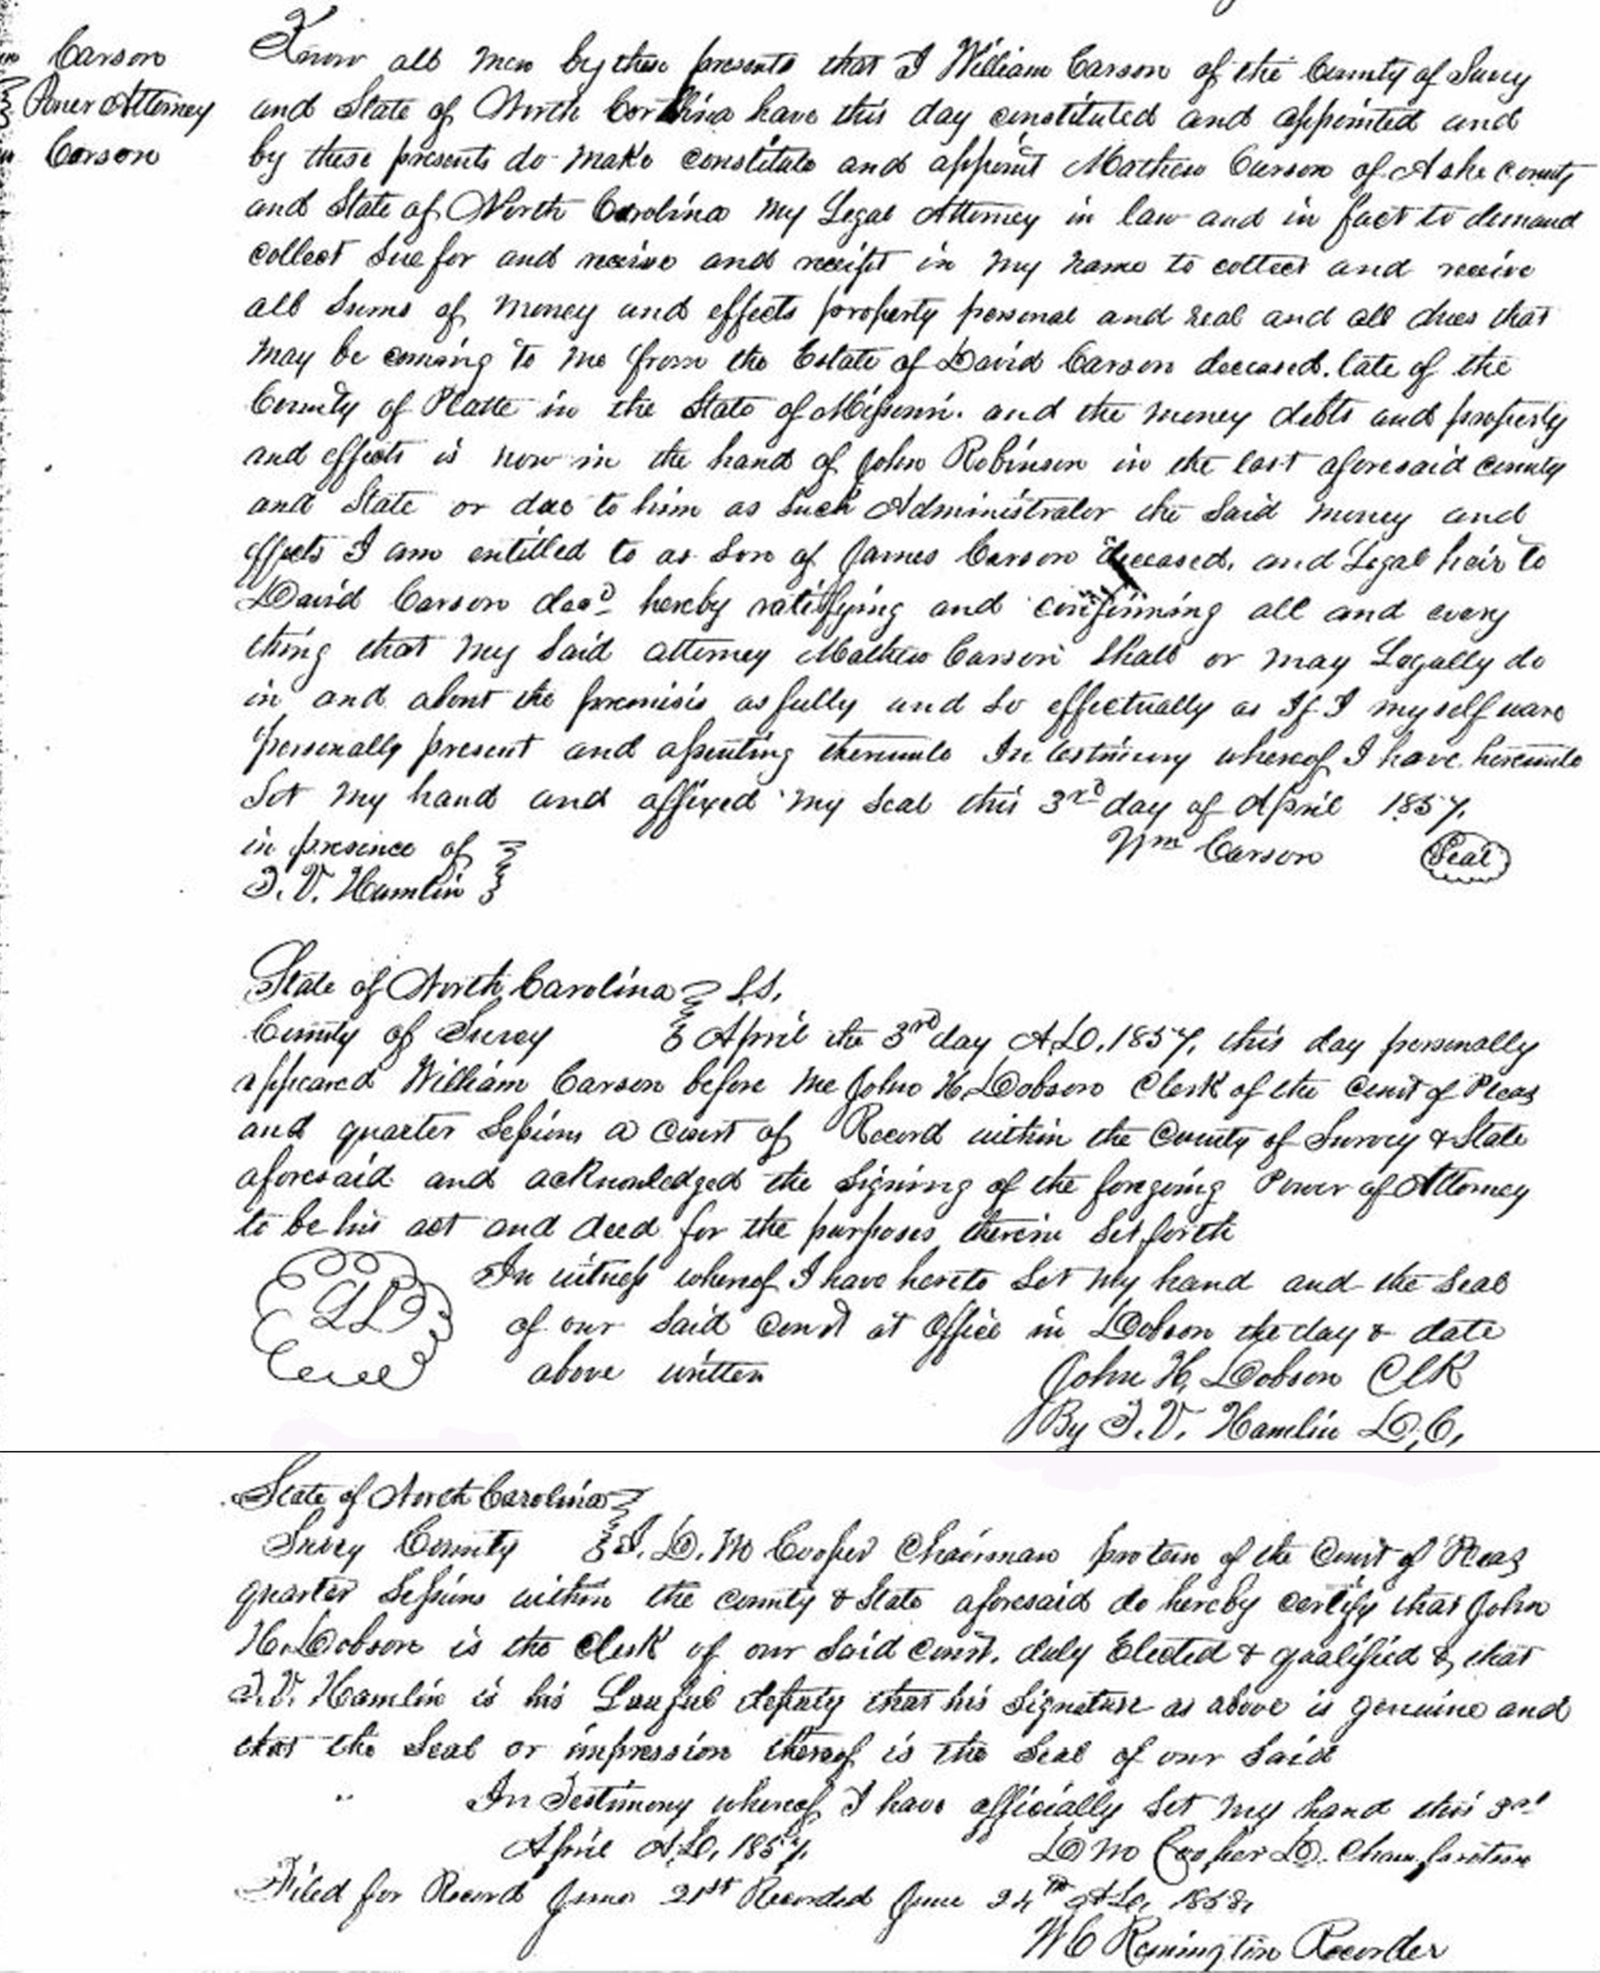 Carson
Power Attorney
Carson
Know all men by these presents that I William Carson of the County of Surry
and State of North Carolina have this day constituted and appointed and
by these presents do make constitute and appoint Mathew Carson of Ashe county
and State of North Carolina my Legal Attorney in law and in fact to demand
collect Sue for and receive and receipt in my name to collect and receive
all Sums of money and effects property personal and real and all dues that
may be coming to me from the Estate of David Carson deceased. late of the
County of Platte in the State of Missouri. and the money debts and property
and effects is now in the hand of John Robinson in the last aforesaid county
and State or due to him as such Administrator the Said money and
effects I am entitled to as Son of James Carson deceased. and Legal heir to
David Carson decd hereby ratifying and confirming all and every
thing that my Said attorney Mathew Carson Shall or may Legally do
in and about the premisis as fully and so effectually as If I myself ware
personally present and assenting thereunto In testimony whereof I have hereunto
Set my hand and affixed my Seal this 3rd day of April 1857.
in presence of
Wm Carson Seal
F. V. Hamlin
State of North Carolina SS.
County of Surry April the 3rd day A.D. 1857. this day personally
appeared William Carson before me John H. Dobson Clerk of the Court of Pleas
and quarter Sessions a Court of Record within the County of Survey & State
aforesaid and acknowledged the Signing of the foregoing Power of Attorney
to be his act and deed for the purposes therein Set forth
In witness whereof I have hereto Set my hand and the Seal
of our Said Court at Office in Dobson the day & date
above written
John H. Dobson ClK
By F. V. Hamlin D.C.
State of North Carolina
Surry County I. D. M Cooper Chairman protem of the Court of Pleas
quarter Sessions within the county & State aforesaid do hereby certify that John
H. Dobson is the Clerk of our Said Court. duly Elected & qualified & that
F. V. Hamlin is his Lawful deputy that his Signature as above is genuine and
that the Seal or impression thereof is the Seal of our Said
In Testimony whereof I have officially Set my hand this 3rd
April A.D. 1857.
D M Cooper Chair protem
Filed for Record June 21st Recorded June 24th A.D. 1858.
W C Remington Recorder